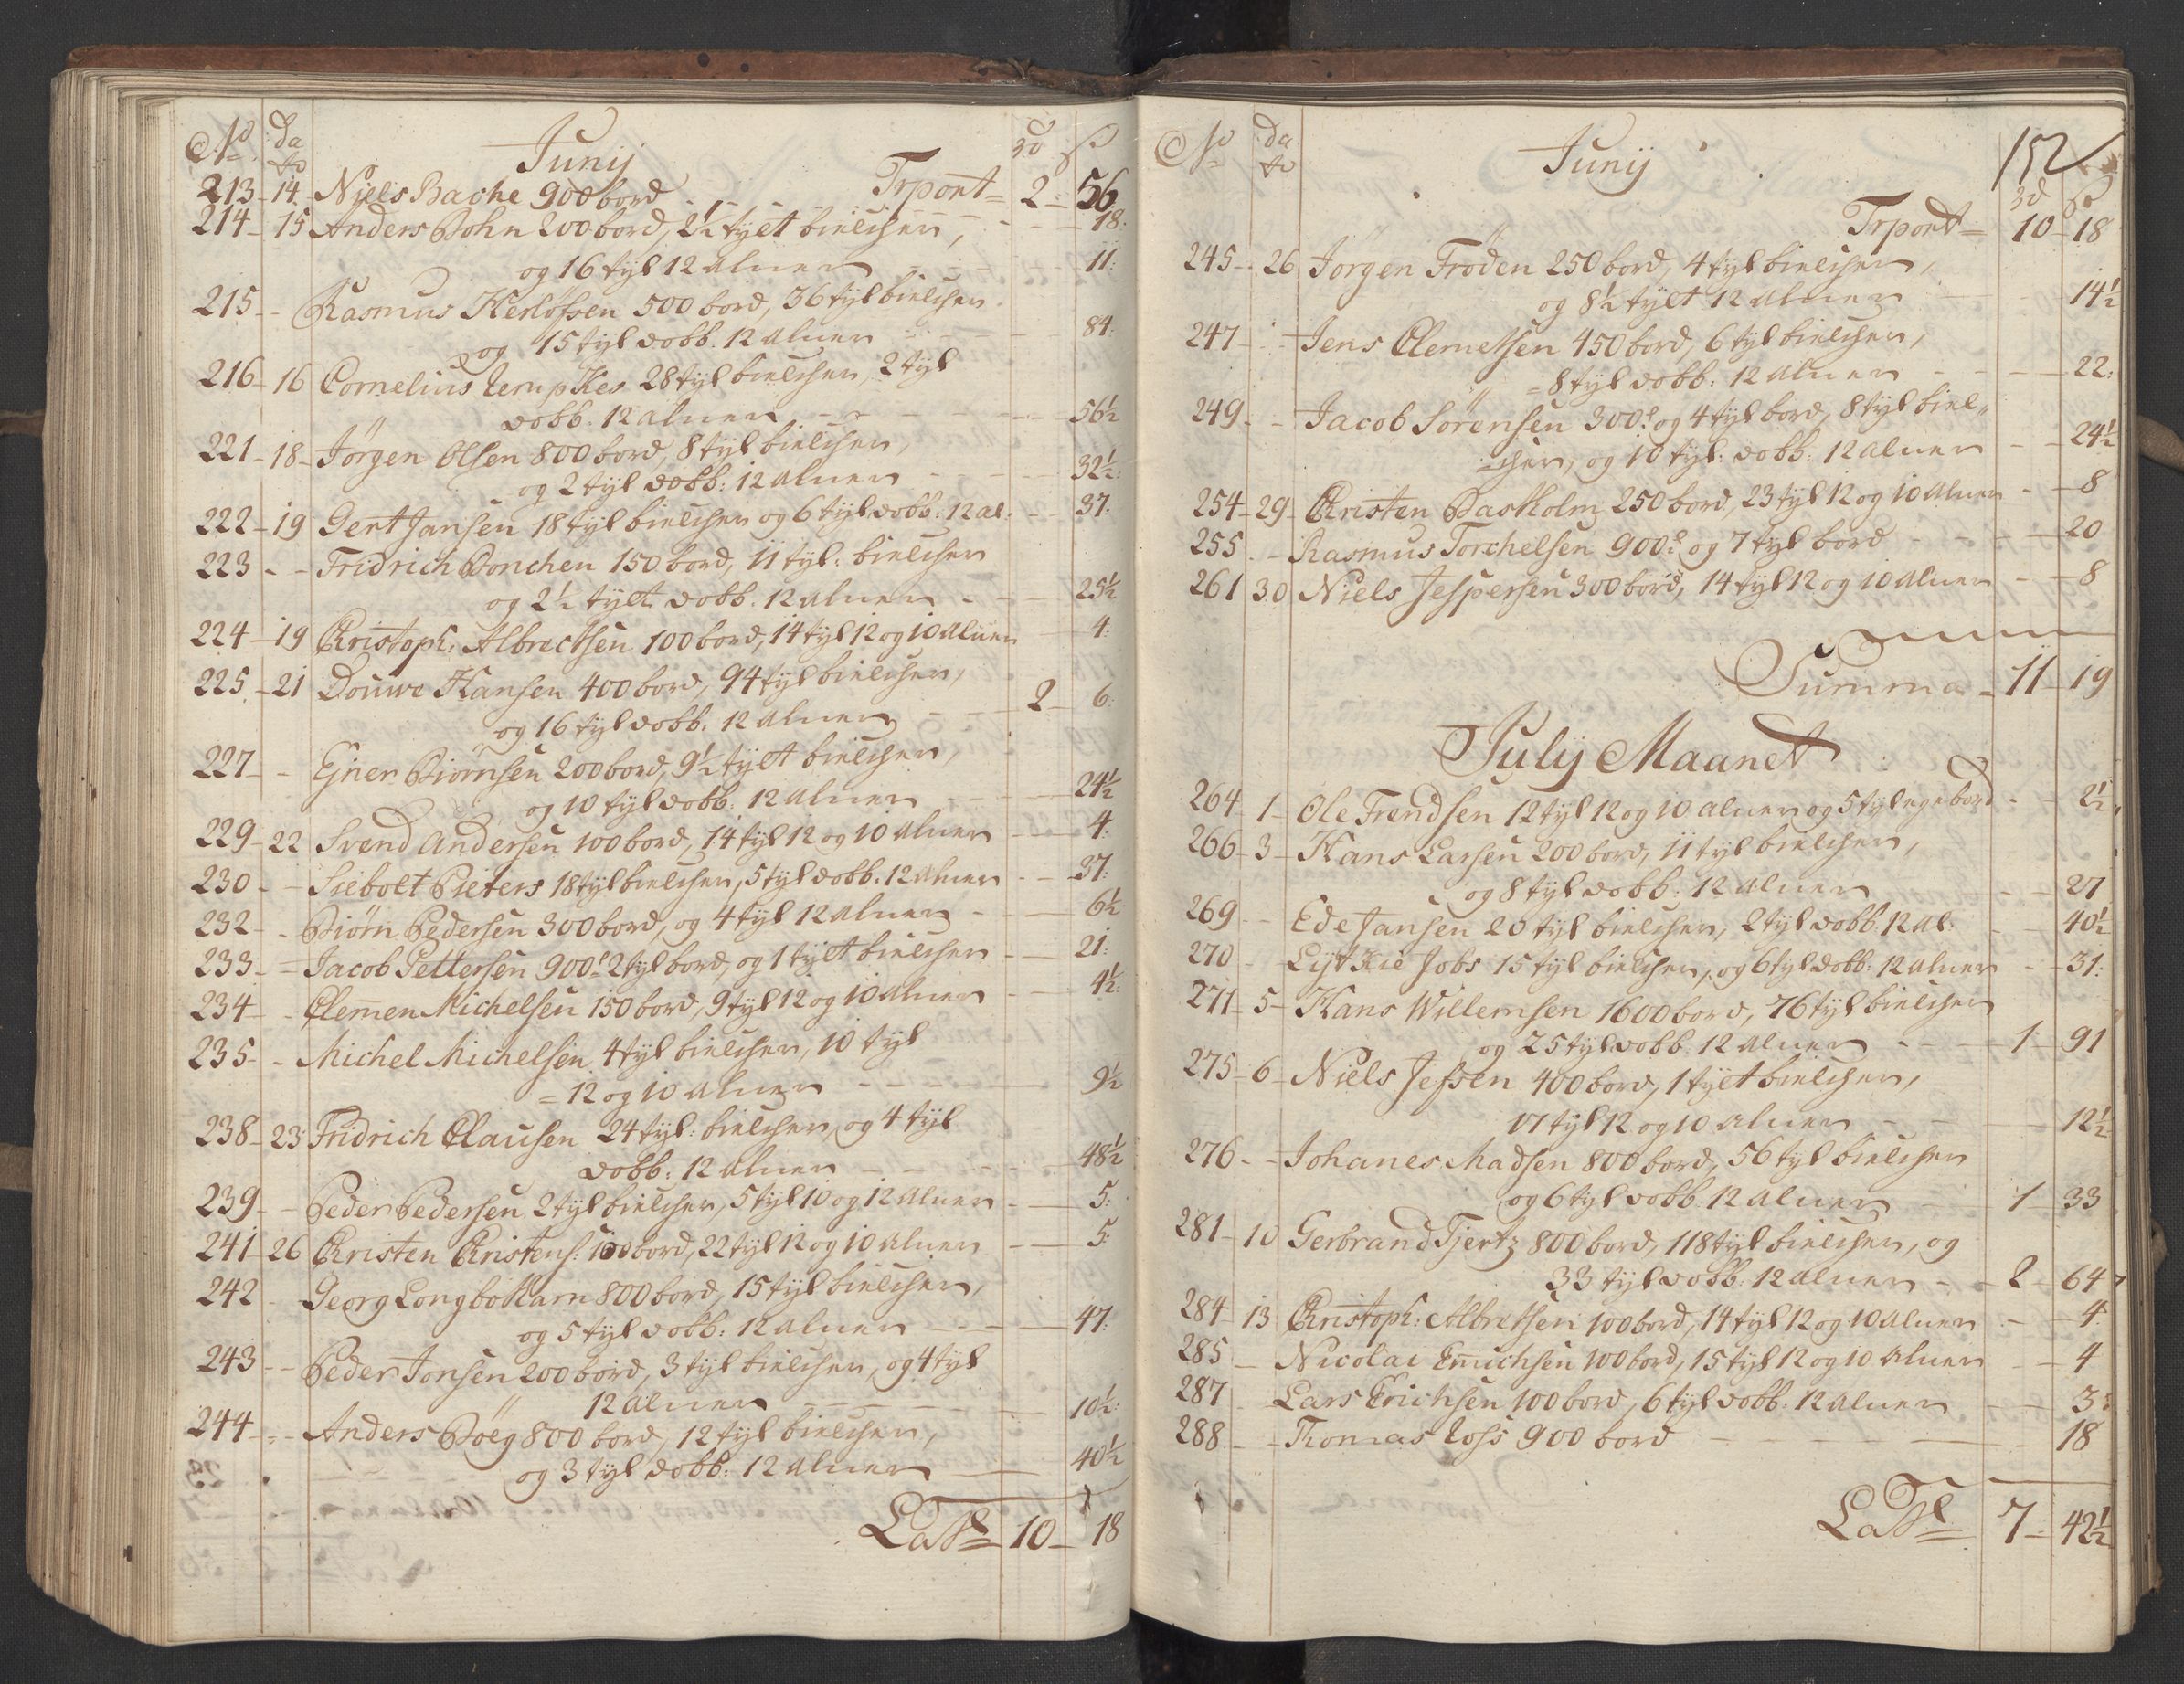 No dato Junij rd s
Trport 2 56
213 14 Niels Bache 900 bord 18
214 15 Anders Bohn 200 bord, 2½ tylt bielcher,
og 16 tyl 12 alner 11
215 Rasmus Herlofsen 500 bord, 36 tyl bielcher
og 15 tyl dobb. 12 alner 84
216 16 Cornelius 28 tyl bielcher, 2 tyl
dobb. 12 alner 56½
221 18 Jörgen Olsen 800 bord, 8 tyl bielcher,
og 2 tyl dobb: 12 alner 32½
222 19 Gert Jansen 18 tyl bielcher og 6 tyl dobb: 12 al. 37
223 Fridrich Donchen 150 bord, 11 tyl: bielcher
og 2½ tylt dobb. 12 alner 25½
224 19 Christoph: Albrectsen 100 bord, 14 tyl 12 og 10 alner 4
225 21 Douwe Hansen 400 bord, 94 tyl bielcher,
og 16 tyl dobb. 12 alner 2 6
227 Ejner Biörnsen 200 bord, 9½ tylt bielcher,
og 10 tyl dobb: 12 alner 24½
229 22 Svend Andersen 100 bord, 14 tyl 12 og 10 alner 4
230 Siebolt Pieters 18 tyl bielcher, 5 tyl dobb. 12 alner 37
232 Biörn Pedersen 300 bord, og 4 tyl 12 alner 6½
233 Jacob Pettersen 900 2 tyl bord, og 1 tylt bielcher 21
234 Clemen Michelsen 150 bord, 9 tyl 12 og 10 alner 4½
235 Michel Michelsen 4 tyl bielcher, 10 tyl
12 og 10 alner 9½
238 23 Fridrich Clausen 24 tyl: bielcher, og 4 tyl
dobb: 12 alner 48½
239 Peder Pedersen 2 tyl bielcher, 5 tyl 10 og 12 alner 5
241 26 Christen Christens: 100 bord, 22 tyl 12 og 10 alner 5
242 Georg Longbottam 800 bord, 15 tyl bielcher,
og 5 tyl dobb: 12 alner 47
243 Peder Jonsen 200 bord, 3 tyl bielcher, og 4 tyl
12 alner 10½
244 Anders Böeg 800 bord, 12 tyl bielcher,
og 3 tyl dobb: 12 alner 40½
Latl 10 18
152
No dato Junij rd s
Trport 10 18
245 26 Jörgen Fröden 250 bord, 4 tyl bielcher,
og 8½ tylt 12 alner 14½
247 Jens Clemetsen 450 bord, 6 tyl bielcher,
8 tyl dobb: 12 alner 22
249 Jacob Sörensen 300 og 4 tyl bord, 8 tyl biel-
cher, og 10 tyl: dobb: 12 alner 24½
254 29 Christen Bastholm 250 bord, 23 tyl 12 og 10 alner 8
255 Rasmus Torchelsen 900 og 7 tyl bord 20
261 30 Niels Jespersen 300 bord, 14 tyl 12 og 10 alner 8
Summa 11 19
Julij Maanet
264 1 Ole Trendsen 12 tyl 12 og 10 alner og 5 tyl ege bord 2½
266 3 Hans Larsen 200 bord, 11 tyl bielcher,
og 8 tyl dobb: 12 alner 27
269 Ede Jansen 20 tyl bielcher, 2 tyl dobb. 12 al: 40½
270 Jobs 15 tyl bielcher, og 6 tyl dobb: 12 alner 31
271 5 Hans Willemsen 1600 bord, 76 tyl bielcher
og 25 tyl dobb. 12 alner 1 91
275 6 Niels Jessen 400 bord, 1 tylt bielcher,
17 tyl 12 og 10 alner 12½
276 Johanes Madsen 800 bord, 56 tyl bielcher
og 6 tyl dobb: 12 alner 1 33
281 10 Gerbrand Tjertz 800 bord, 118 tyl bielcher, og
33 tyl dobb: 12 alner 2 64
284 13 Christoph: Albretsen 100 bord, 14 tyl 12 og 10 alner 4
285 Nicolai Emichsen 100 bord, 15 tyl 12 og 10 alner 4
287 Lars Erichsen 100 bord, 6 tyl dobb. 12 alner 3
288 Thomas 900 bord 18
Latl 7 42½